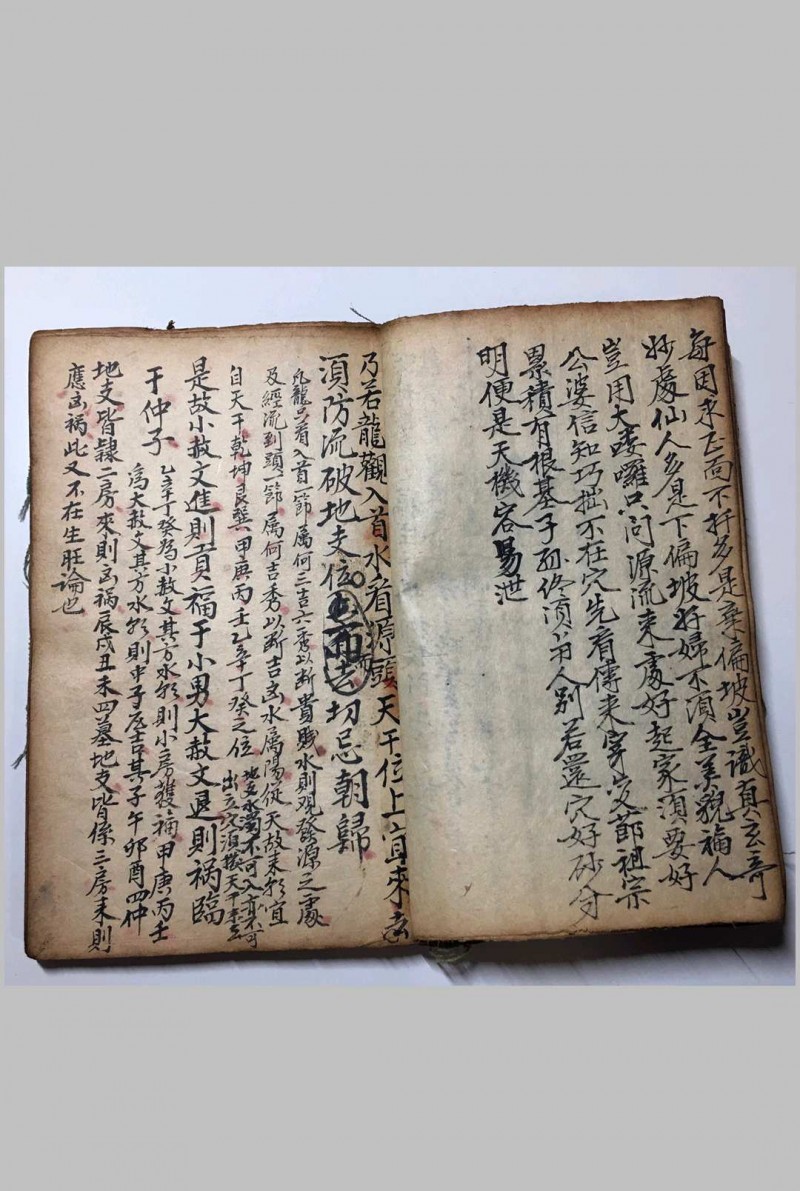 每因求正面不扞多是弃偏坡豈識真玄奇
妙處仙人多是下偏坡好婦不須全美貌福人
豈用大嘍囉只問源流来處好起家須要好
公婆信知巧拙不在穴先看傳来穿变節祖宗
累積有根基子孫終須異人別若還穴好砂分
明便是天機容易泄
乃若龍觀入首水看源頭天干位上宜来去
須防流破地支位切忌朝歸
凡龍只看入首一節屬何三吉六秀以断貴賤水則观發源之處
及經流到頭一節屬何吉秀以断吉凶水屬陽從天故来水宜
自天干乾坤艮巽甲庚丙壬乙辛丁癸之位
地支水濁不可入亦不可
出立穴須撥天干来去
是故小赦文進則貢福于小男大赦文退則祸臨
于仲子
乙辛丁癸為小赦文其方水朝則小房獲福甲庚丙壬
為大赦文其方水朝則中子應吉其子午卯酉四仲
地支皆隸二房来則凶祸辰戌丑未四墓地支皆係三房来則
應凶祸此又不在生旺論也